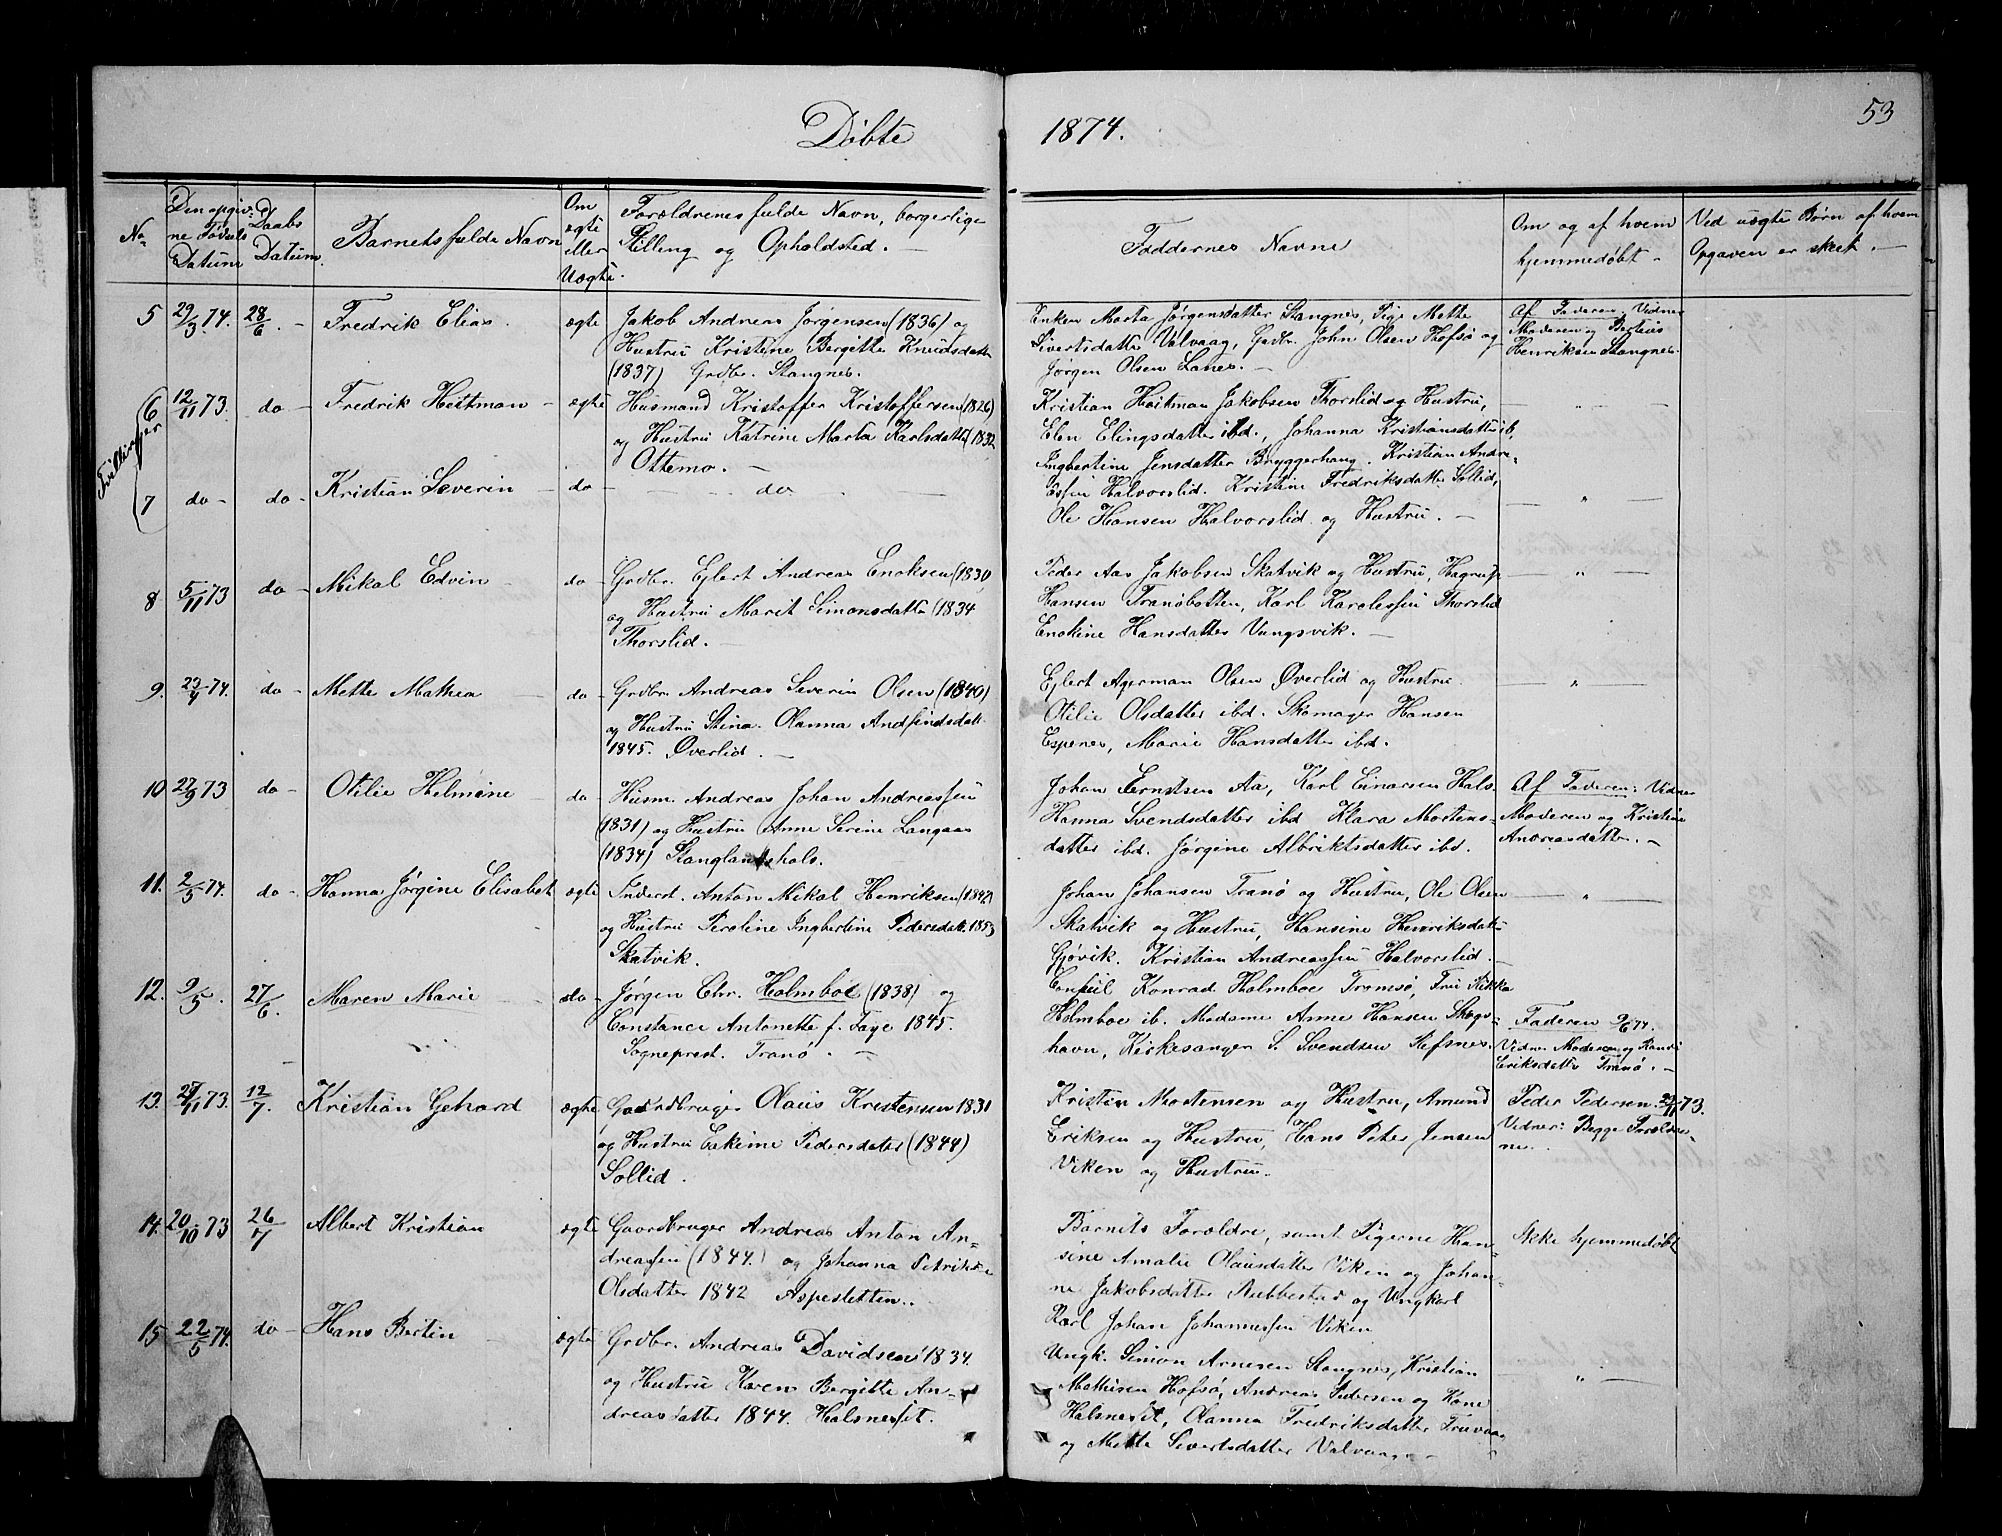 Døbte 1874. 53
No
Den opgivne Fødsels Datum
Daabs Datum.
Barnets fulde Navn
Om ægte eller Uægte.
Forældrenes fulde Navn, borgerlige Stilling og Opholdsted. —
Faddernes Navne
Om og af hvem hjemmedøbt —
Ved uægte Børn af hvem Opgaven er skeet. —
5 29/3 74. 28/6 — Fredrik Elias. ægte
Jakob Andreas Jørgensen (1836) og
Hustru Kristine Bergitte Knudsdatter
(1837) Grdbr. Stangnes.
Enken Marta Jørgensdatter Stangnes, Pige Mette
Sivertsdatter Valvaag, Gadbr. John Olsen Hofsø og
Jørgen Olsen Lanes. —
Af Faderen, Vidner
Moderen og Bertius
Henriksen Stangnes.
Tvillinger
6 12/11 73. do — Fredrik Heitman — ægte
Husmand Kristoffer Kristoffersen (1826)
og Hustru Katrine Marta Karlsdatter (1832
Ottemo. —
Kristian Heitman Jakobsen Thorslid og Hustru,
Elen Elingsdatter ibd., Johanna Kristiansdatter ib,
Ingbertine Jensdatter Bryggerhaug. Kristian Andre-
— " —
7 do — do — Kristian Severin — do — — do —
essen Halvorslid. Kristine Fredriksdatter Sollid,
Ole Hansen Halvorslid og Hustru. —
— " —
8 5/11 73 do — Mikal Edvin — do —
Grdbr. Ejlert Andreas Enoksen (1830,
og Hustru Marit Simonsdatter (1834
Thorslid. —
Peder Aas Jakobsen Skatvik og Hustru,
Hansen Tranøbotten, Karl Karelessen Thorslid
Enokine Hansdatter Vangsvik. —
— " —
9. 23/4 74. do — Mette Mathea — do —
Grdbr. Andreas Severin Olsen (1840)
og Hustru Stina. Olanna Andfindsdatt.
1845. Øverlid. —
Ejlert Agerman Olsen Øverlid og Hustru.
Otilie Olsdatter ibd. Skomager Hansen
Espenes, Marie Hansdatter ibd.
— " —
10 23/9 73 do — Otilie Helmine — do —
Husm. Andreas Johan Andreassen
(1831) og Hustru Anne Serine Langaas
(1834) Stanglandshals.
Johan Ernstsen Aa, Karl Einarsen Hals
Hanna Svendsdatter ibd Klara Mortens-
datter ibd. Jørgine Albriktsdatter ibd.
Af Faderen: Vidner
Moderen og Kristine
Andreasdatter. —
11. 2/5 74. do — Hanna Jørgine Elisabet ægte
Inderst. Anton Mikal Henriksen (1842)
og Hustru Peroline Ingbertine Pedersdatt. 1853
Skatvik.
Johan Johansen Tranø og Hustru, Ole Olsen
Skatvik og Hustru, Hansine Henriksdatter
Gjøvik. Kristian Andreassen Halvorslid. —
— " —
12. 9/5. 27/6. Maren Marie — do —
Jørgen Chr. Holmboe (1838) og
Constance Antonette f. Faye 1845.
Sogneprest. Tranø. —
Consul Konrad Holmboe Tromsø, Fru Rikka
Holmboe ib. Madame Anne Hansen Skogs-
havn, Kirkesanger S. Svendsen Refsnes.
Faderen 9/6 74.
Vidner Moderen og
Eriksdatter Tranø. —
13. 27/11 73. 12/7. Kristian Gehard ægte,
Gaardbruger Olaus Kristensen 1831
og Hustru Eakime Pedersdatter (1844)
Sollid.
Kristin Mortensen og Hustru, Amund
Eriksen og Hustru, Hans Peter Jensen
Viken og Hustru.
Peder Pedersen 29/11 73.
Vidner: Begge Foreldre-
ne.
14. 20/10 73 26/7 Albert Kristian ægte
Gaardbruger Andreas Anton An-
dreassen (1844.) og Johanna Petrikke
Olsdatter 1842 Aspesletten.
Barnets Forældre, samt Pigerne Han-
sine Amalie Olausdatter Viken og Johan-
ne Jakobsdatter Rubbestad og Ungkarl
Karl Johan Johannessen Viken
Ikke hjemmedøbt
15 22/5 74. do — Hans Bertin — ægte
Grdbr. Andreas Davidsen 1834.
og Hustru Karen Bergitte An-
dreasdatter 1844. Halsnesset.
Ungk. Simon Arnesen Stangnes, Kristian
Mathisen Hofsø, Andreas Pedersen og Kone
Halsneset, Olanna Fredriksdatter Truvaag
og Mette Sivertsdatter Valvaag. —
— " —